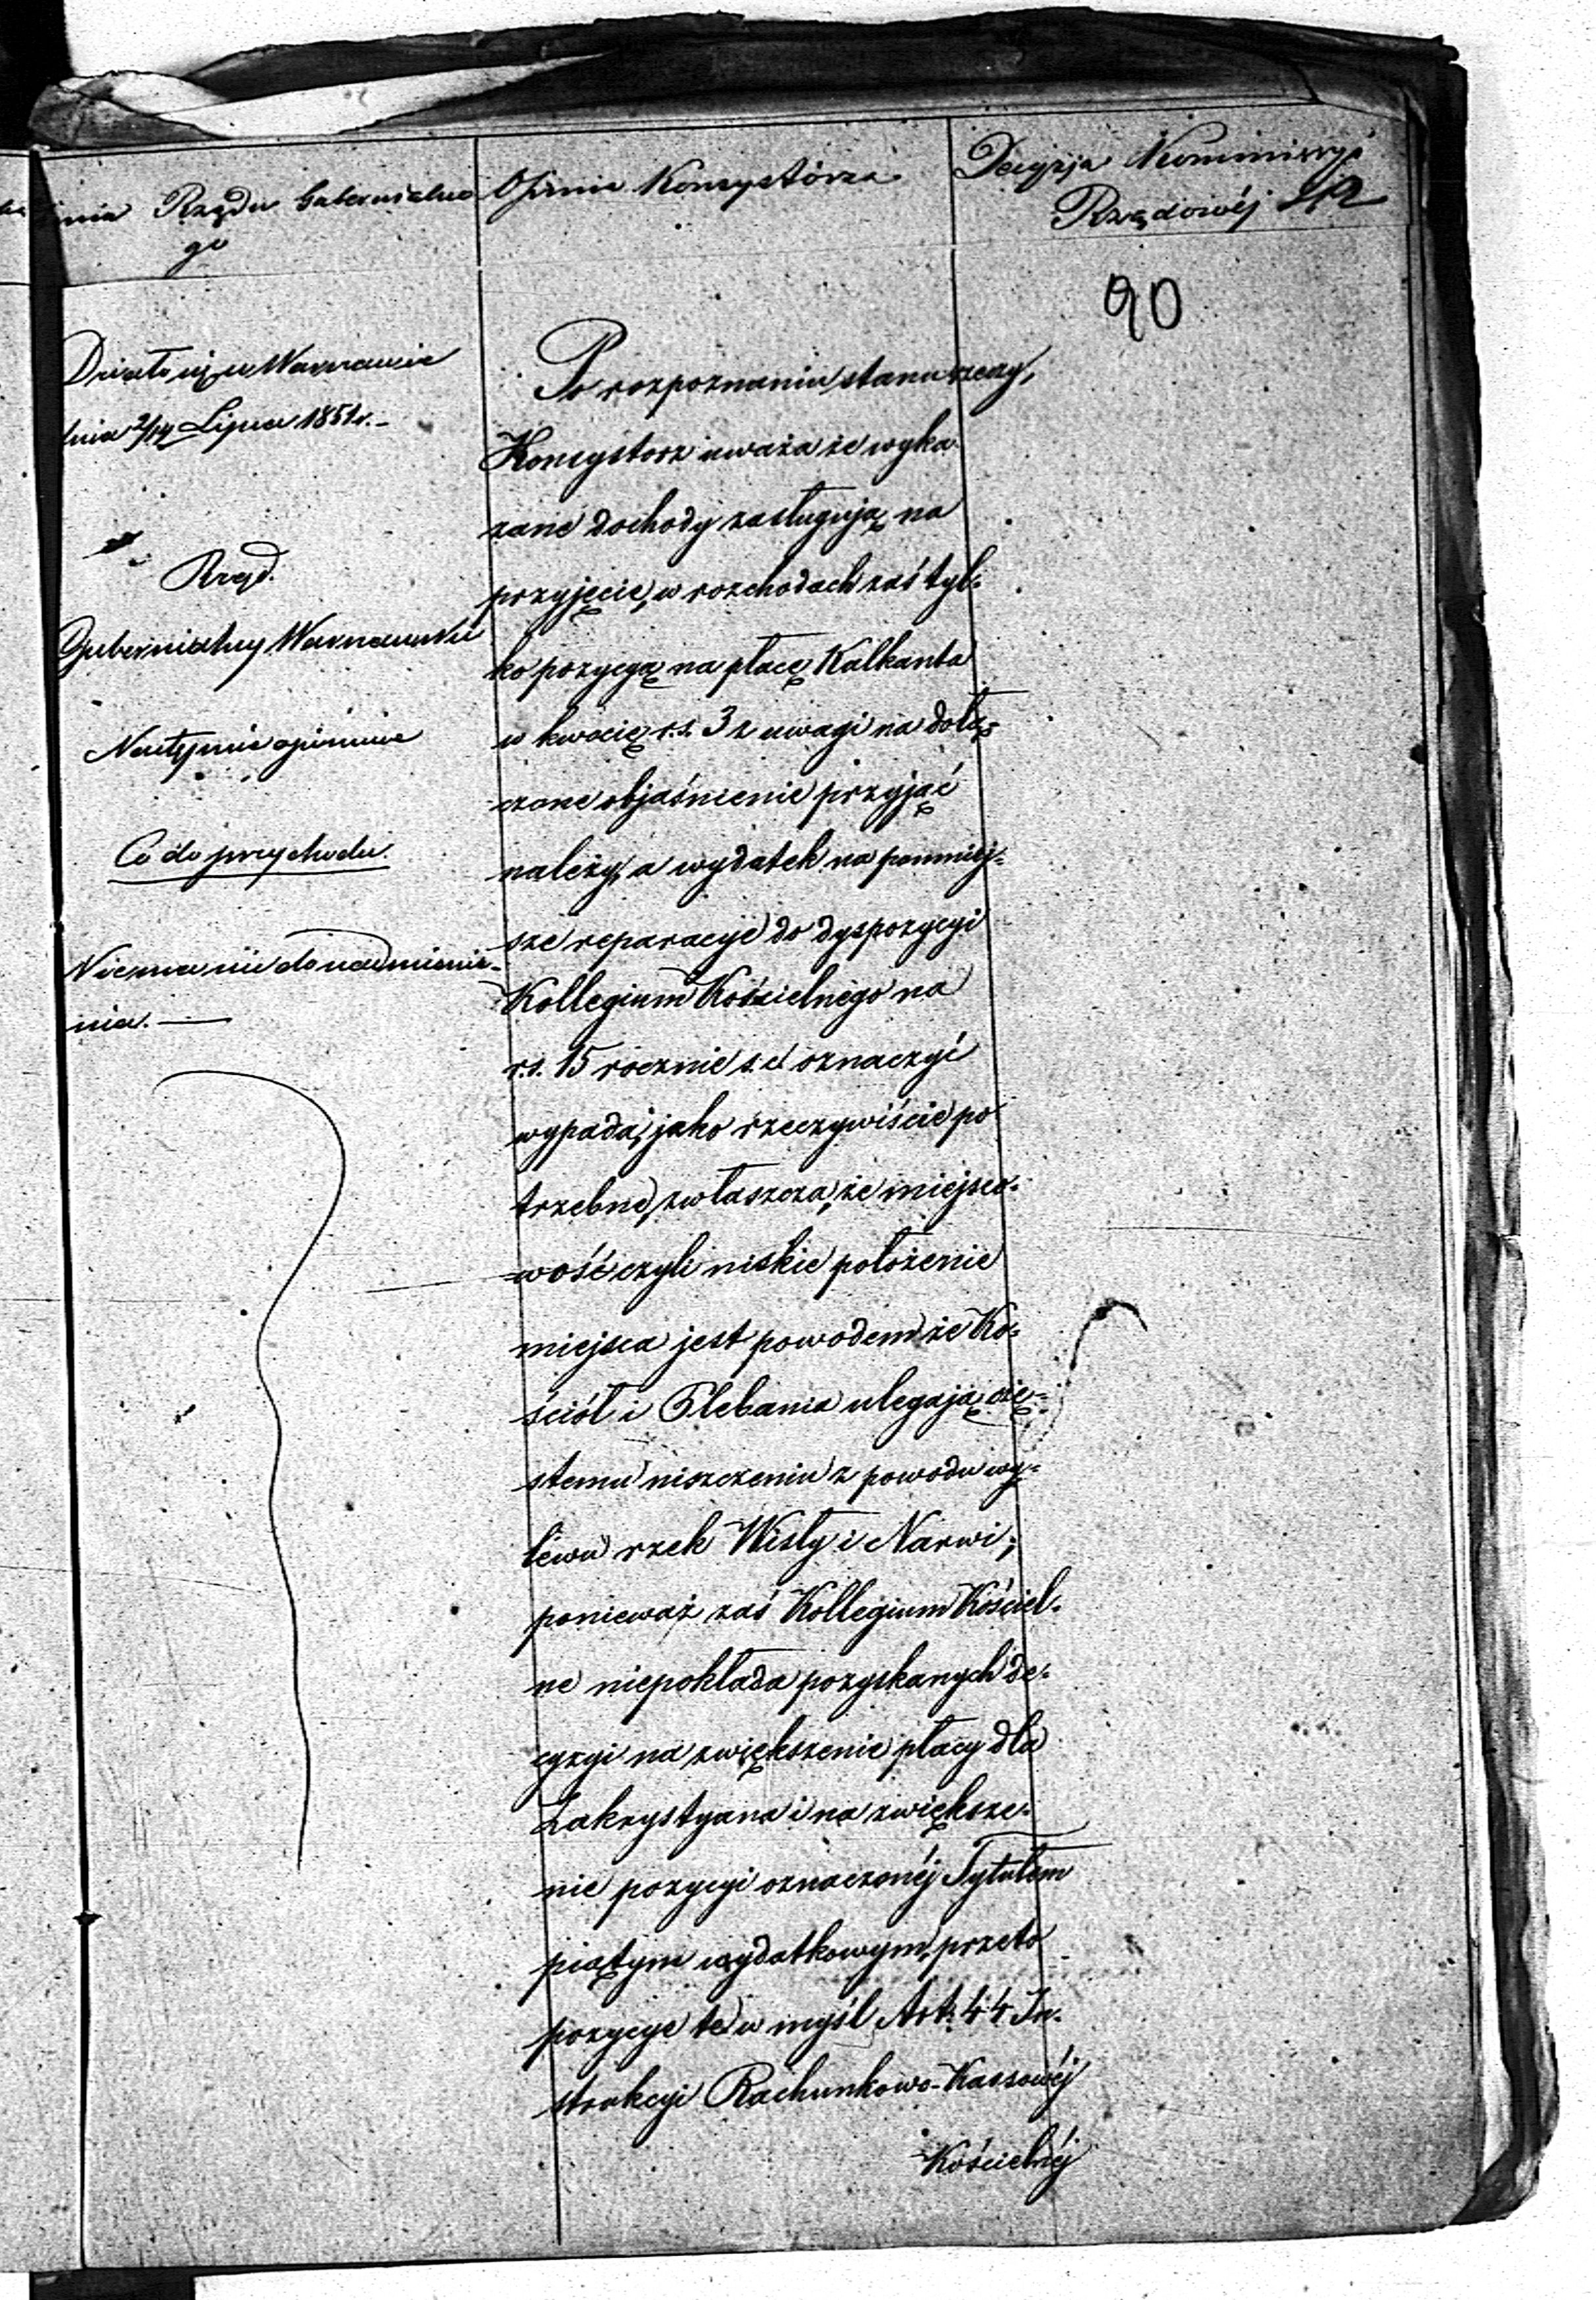 Opinia Rządu Gubernialne
go
Działo się w Warszawie
dnia 2/14 Lipca 1851 r. –
Rząd.
Gubernialny Warszawski
Następnie opiniuje
Co do przychodu.
Niema nic do nadmienie-
nia. —
Opinia Konsystórza
Po rozpoznaniu stanu rzeczy,
Konsystorz uważa że wyka-
zane dochody zasługują na
przyjęcie, w rozchodach zaś tyl-
ko pozycyą na płacę Kalkanta
w kwocie r.s. 3 z uwagi na dołą-
czone objaśnienie przyjąć
należy, a wydatek na pomniej-
sze reparacye do dyspozycyi
Kollegium Kościelnego na
r.s. 15 rocznie s.d. oznaczyć
wypada, jako rzeczywiście po
trzebne, zwłaszcza, że miejsco-
wość czyli niskie położenie
miejsca jest powodem że Ko-
ściół i Plebania ulegają czę-
stemu niszczeniu z powodu wy-
lewu rzek Wisły i Narwi;
ponieważ zaś Kollegium Kościel-
ne niepokłada pozyskanych de-
cyzyi na zwiększenie płacy dla
Zakrystyana i na zwiększe-
nie pozycyi oznaczonéj Tytułem
piątym wydatkowym, przeto
pozycye te w myśl Art. 44 In-
strukcyi Rachunkowo-Kassowéj
Kościelnéj
Decyzja Kommissyi
Rządowéj
90